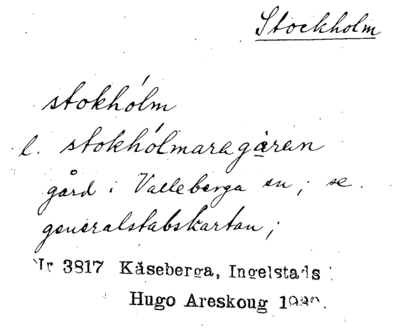 Stockholm
stokhólm
l. stokhólmaragåren
gård i Valleberga sn; se
generalstabskartan;
Nr 3817 Kåseberga, Ingelstads
Hugo Areskoug